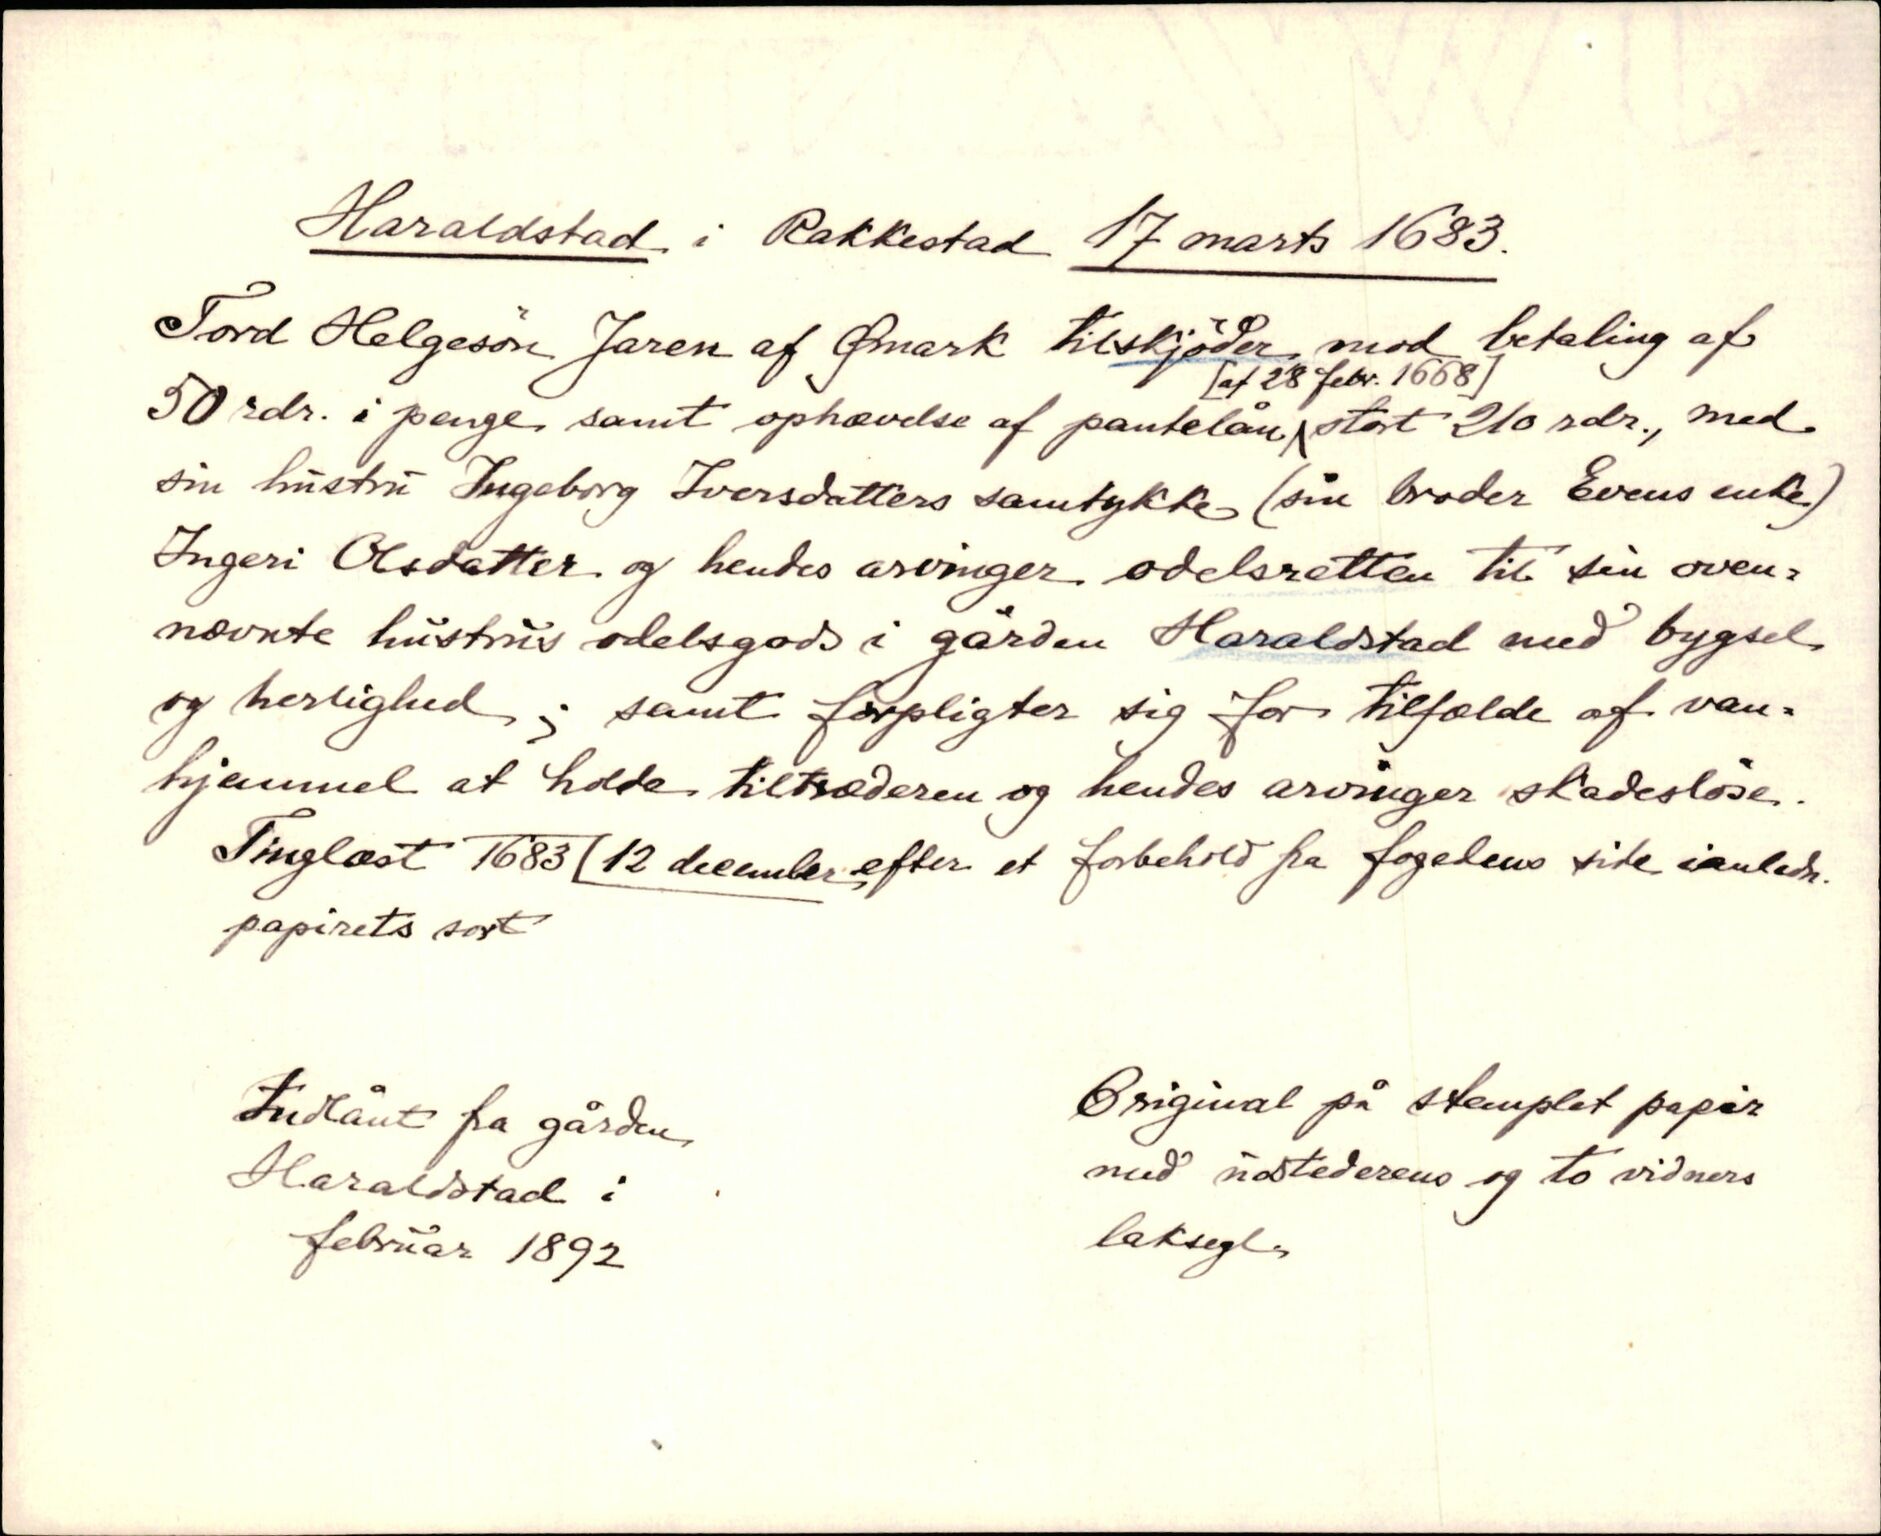 Haraldstad i Rakkestad 17 marts 1683.
Tord Helgesön Jaren af Ømark tilskjöder mod betaling af
[af 28 febr. 1668]
50 rdr. i penge samt ophævelse af pantelån, stort 210 rdr., med
sin hustru Ingeborg Iversdatters samtykke (sin broder Evens enke)
Ingeri Olsdatter og hendes arvinger odelsretten til sin oven-
nævnte hustrus odelsgods i gården Haraldstad med bygsel
og herlighed; samt forpligter sig for tilfælde af van-
hjemmel at holde tiltræderen og hendes arvinger skadesløse.
Tinglæst 1683 [12 december efter et forbehold fra fogedens side i anledn.
papirets sort
Indlånt fra gården
Haraldstad i
februar 1892
Original på stemplet papir
med udstederens og to vidners
laksegl.